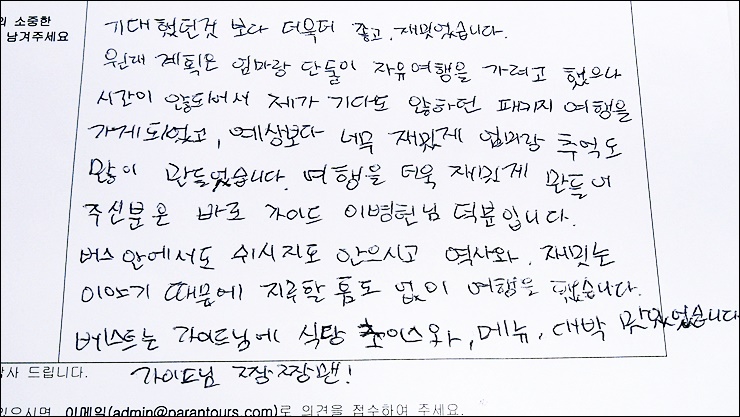 의 소중한
남겨주세요
기대했던것 보다 더욱더 좋고, 재밌었습니다.
원래 계획은 엄마랑 단둘이 자유여행을 가려고 했으나
시간이 않되서 제가 기다도 않하던 패키지 여행을
가게되었고, 예상보다 너무 재밌게 엄마랑 추억도
많이 만들었습니다. 여행을 더욱 재밌게 만들어
주신분은 바로 가이드 이병헌님 덕분입니다.
버스 안에서도 쉬시지도 안으시고 역사와, 재밌는
이야기 때문에 지루할 틈도 없이 여행을 했습니다.
베스트는 가이드님에 식당 초이스와, 메뉴, 대박 맛있었습니다
사 드립니다.
가이드님 짱짱맨!
있으시면 이메일(admin@parantours.com)로 의견을 접수하여 주세요.